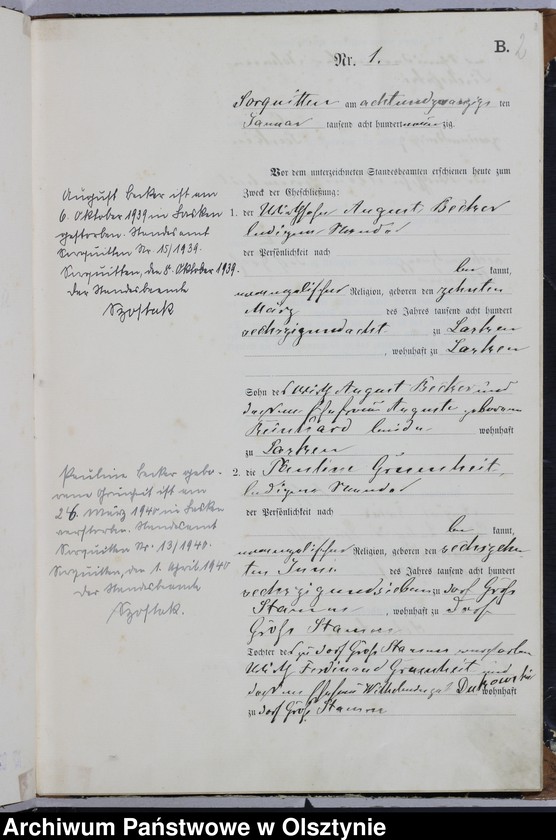 B.
2
Nr. 1.
Sorquitten am achtundzwanzigs ten
Januar tausend acht hundert neunzig.
Vor dem unterzeichneten Standesbeamten erschienen heute zum
Zweck der Eheschließung:
1. der Wirthssohn August Becker
ledigen Standes
der Persönlichkeit nach
be kannt,
evangelischer Religion, geboren den zehnten
März des Jahres tausend acht hundert
sechszigundacht zu
, wohnhaft zu
Sohn des Wirth August Becker und
dessen Ehefrau Auguste geborenen
Reinhard beide wohnhaft
zu
2. die Pauline Grünheit,
ledigen Standes
der Persönlichkeit nach
be kannt,
evangelischer Religion, geboren den sechszehn-
ten Juni des Jahres tausend acht hundert
sechszigundsieben zu Dorf Groß
Stamm , wohnhaft zu Dorf
Groß Stamm
Tochter des zu Dorf Groß Stamm
Wirth Ferdinand Grünheit und
dessen Ehefrau Wilhelmine geb. wohnhaft
zu Dorf Groß Stamm
August Becker ist am
6. Oktober 1939 in
gestorben. Standesamt
Sorquitten Nr. 15/1939.
Sorquitten, den 8. Oktober 1939.
Der Standesbeamte
Szostak
Pauline Becker gebo-
rene Grünheit ist am
26. März 1940 in
verstorben. Standesamt
Sorquitten Nr. 13/1940.
Sorquitten, den 1. April 1940
Der Standesbeamte
Szostak.
Archiwum Państwowe w Olsztynie